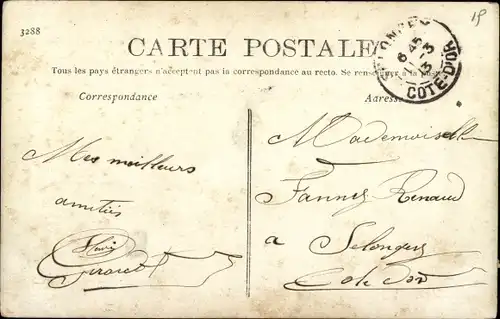 3288
19
CARTE POSTALE
Tous les pays étrangers n'acceptent pas la correspondance au recto. Se renseigner à la poste
Correspondance
Adresse
SELONGEY
6 45
3
13
COTE-D'OR
Mes meilleurs
amitiés
Mademoiselle
Fanny Renaud
a
Selongey
Cote d'or